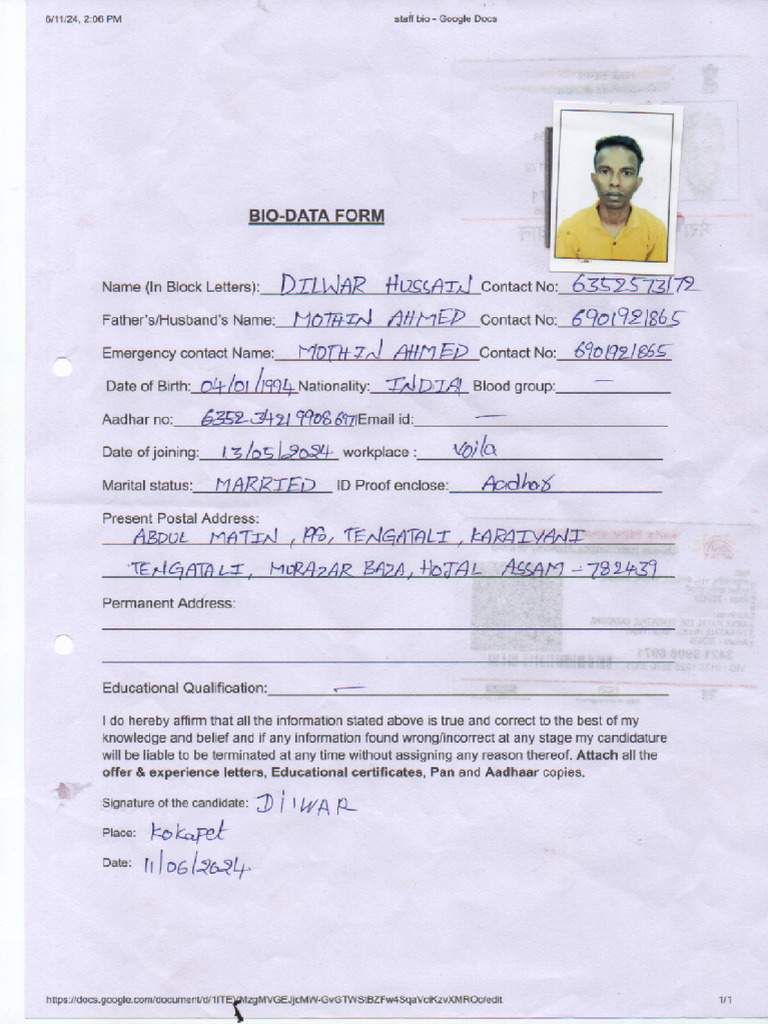 6/11/24, 2:06 PM staff bio - Google Docs
BIO-DATA FORM
Name (In Block Letters): DILWAR HUSSAIN Contact No: 6352573172
Father's/Husband's Name: MOTHIN AHMED Contact No: 6901921865
Emergency contact Name: MOTHIN AHMED Contact No: 6901921865
Date of Birth: 04/01/1994 Nationality: INDIA Blood group: —
Aadhar no: 6352 3421 9908 6971 Email id: —
Date of joining: 13/05/2024 workplace : Voila
Marital status: MARRIED ID Proof enclose: Aadhar
Present Postal Address:
ABDUL MATIN, TENGATALI, KARAIYANI
TENGATALI, MURAZAR BAZA, HOJAI ASSAM - 782439
Permanent Address:
Educational Qualification: —
I do hereby affirm that all the information stated above is true and correct to the best of my
knowledge and belief and if any information found wrong/incorrect at any stage my candidature
will be liable to be terminated at any time without assigning any reason thereof. Attach all the
offer & experience letters, Educational certificates, Pan and Aadhaar copies.
Signature of the candidate: DilWAR
Place: Kokapet
Date: 11/06/2024
https://docs.google.com/document/d/ 1/1